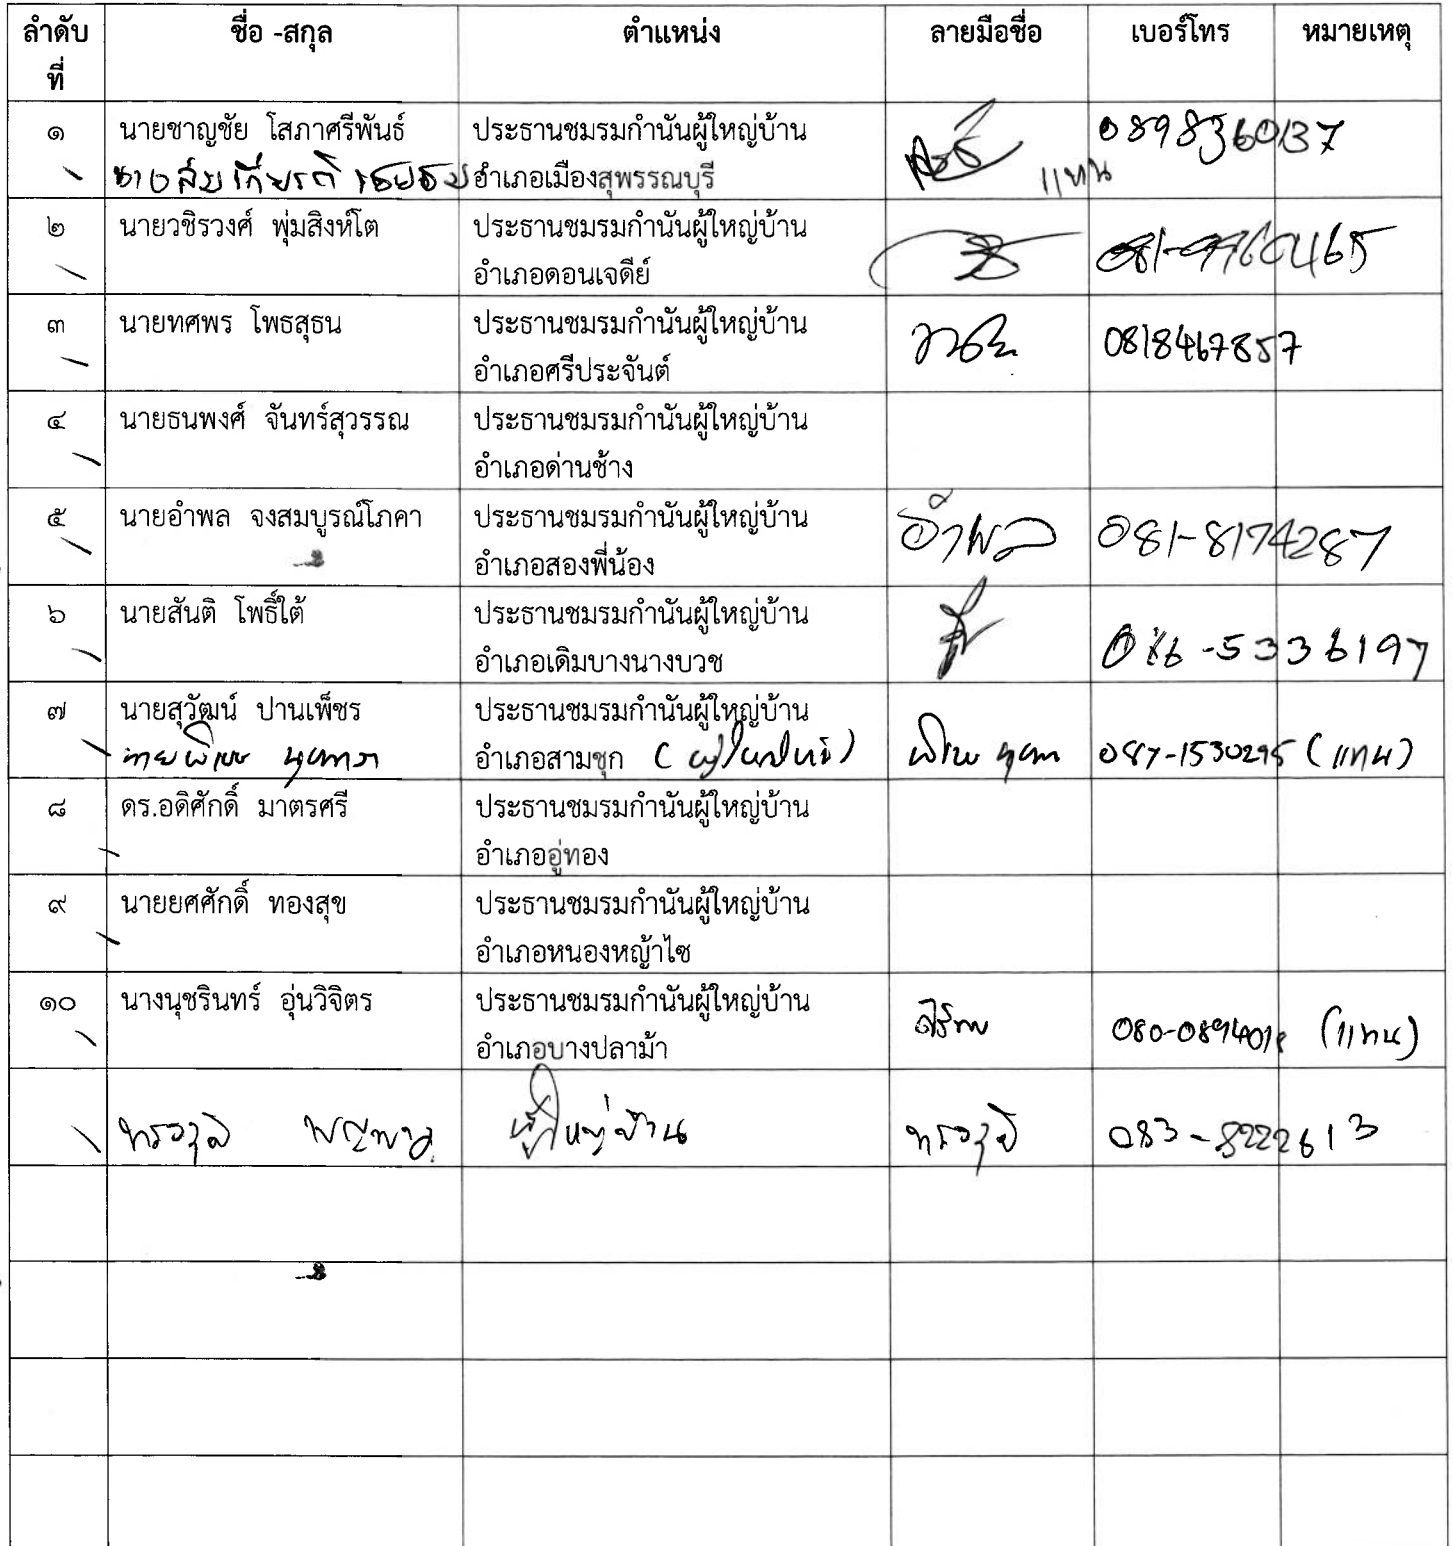 ลำดับ ชื่อ -สกุล ตำแหน่ง ลายมือชื่อ เบอร์โทร หมายเหตุ
ที่
๑ นายชาญชัย โสภาศรีพันธ์ ประธานชมรมกำนันผู้ใหญ่บ้าน 0898360137
อำเภอเมืองสุพรรณบุรี แทน
๒ นายวชิรวงศ์ พุ่มสิงห์โต ประธานชมรมกำนันผู้ใหญ่บ้าน
อำเภอดอนเจดีย์
๓ นายทศพร โพธสุธน ประธานชมรมกำนันผู้ใหญ่บ้าน 0818467857
อำเภอศรีประจันต์
๔ นายธนพงศ์ จันทร์สุวรรณ ประธานชมรมกำนันผู้ใหญ่บ้าน
อำเภอด่านช้าง
๕ นายอำพล จงสมบูรณ์โภคา ประธานชมรมกำนันผู้ใหญ่บ้าน อำพล 081-8174287
อำเภอสองพี่น้อง
๖ นายสันติ โพธิ์ใต้ ประธานชมรมกำนันผู้ใหญ่บ้าน 086-5336197
อำเภอเดิมบางนางบวช
๗ นายสุวัฒน์ ปานเพ็ชร ประธานชมรมกำนันผู้ใหญ่บ้าน
อำเภอสามชุก 087-1530295 (แทน)
๘ ดร.อดิศักดิ์ มาตรศรี ประธานชมรมกำนันผู้ใหญ่บ้าน
อำเภออู่ทอง
๙ นายยศศักดิ์ ทองสุข ประธานชมรมกำนันผู้ใหญ่บ้าน
อำเภอหนองหญ้าไซ
๑๐ นางนุชรินทร์ อุ่นวิจิตร ประธานชมรมกำนันผู้ใหญ่บ้าน (แทน)
อำเภอบางปลาม้า
ผู้ใหญ่บ้าน 083-8222613